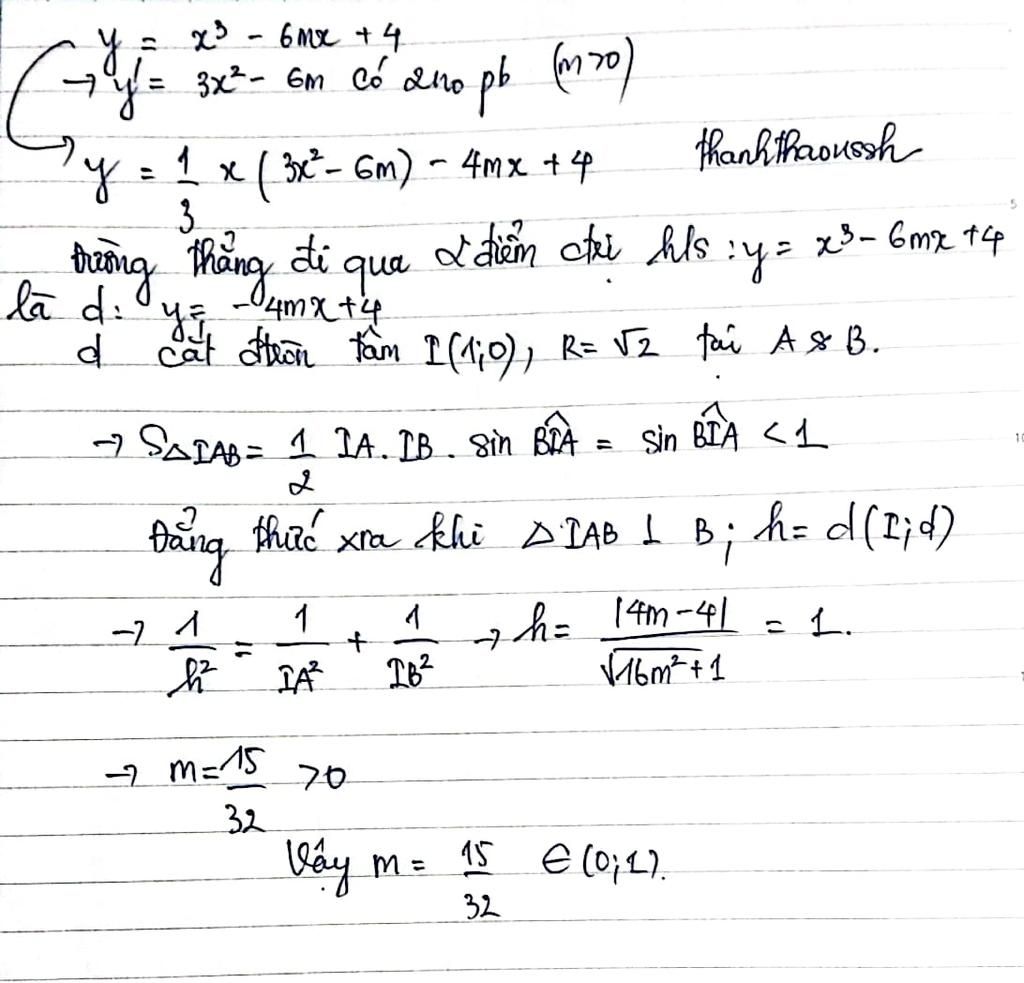 y = x³ - 6mx + 4
→ y' = 3x² - 6m có 2no pb (m>0)
→ y = 1/3 x (3x² - 6m) - 4mx + 4 thanhthaoussh
đường thẳng đi qua 2 điểm ctrị h/s : y = x³ - 6mx + 4
là d: y = -4mx + 4
d cắt đtròn tâm I(1;0), R = √2 tại A & B.
→ S△IAB = 1/2 IA. IB. sin BÎA = sin BÎA < 1
Đẳng thức xra khi △IAB ⊥ B; h = d(I;d)
→ 1/h² = 1/IA² + 1/IB² → h = |4m - 4|/√16m² + 1 = 1.
→ m = 15/32 >0
Vậy m = 15/32 ∈ (0;1).